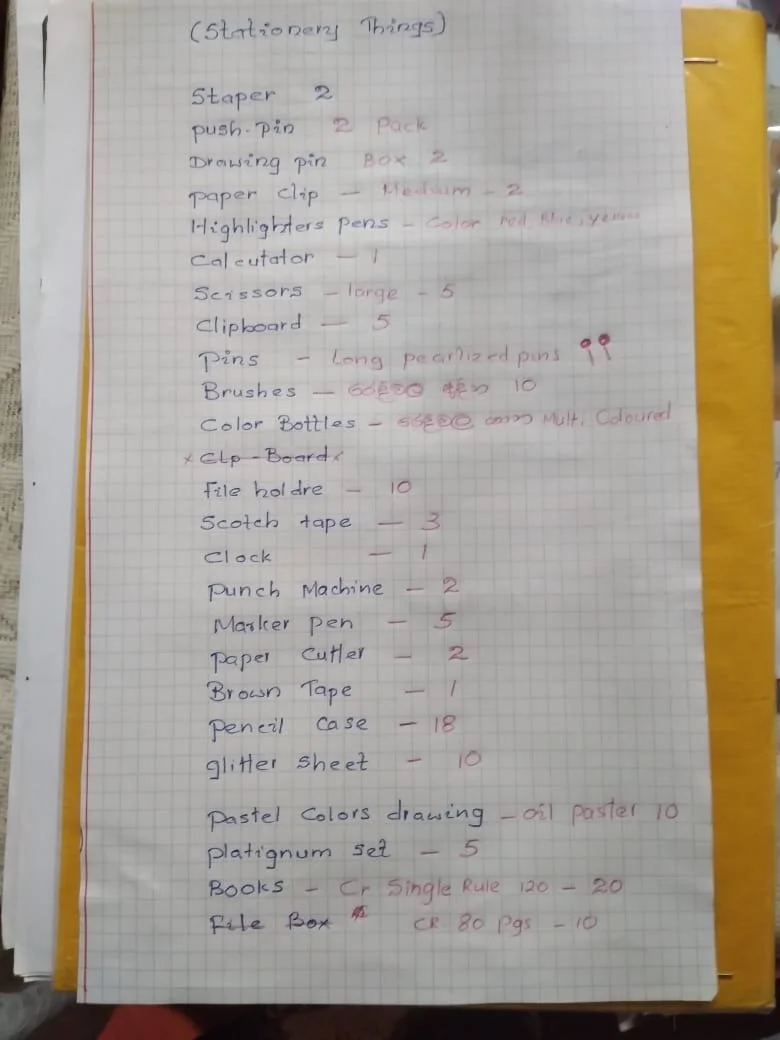 (Stationery Things)
Staper 2
push-pin 2 Pack
Drawing pin Box 2
paper clip - Meduim - 2
Highlighters pens - Color Red Blue, yellow
Calcutator - 1
Scissors - large - 5
Clipboard - 5
Pins - Long pearlized pins
Brushes - රෙදිවල අඳින 10
Color Bottles - රෙදිවල ගාන Multi Coloured
x Clp-Board x
file holdre - 10
Scotch tape - 3
Clock - 1
Punch Machine - 2
Marker pen - 5
paper Cutter - 2
Brown Tape - 1
pencil case - 18
glitter sheet - 10
Pastel Colors drawing - oil paster 10
platignum set - 5
Books - Cr Single Rule 120 - 20
File Box CR 80 Pgs - 10